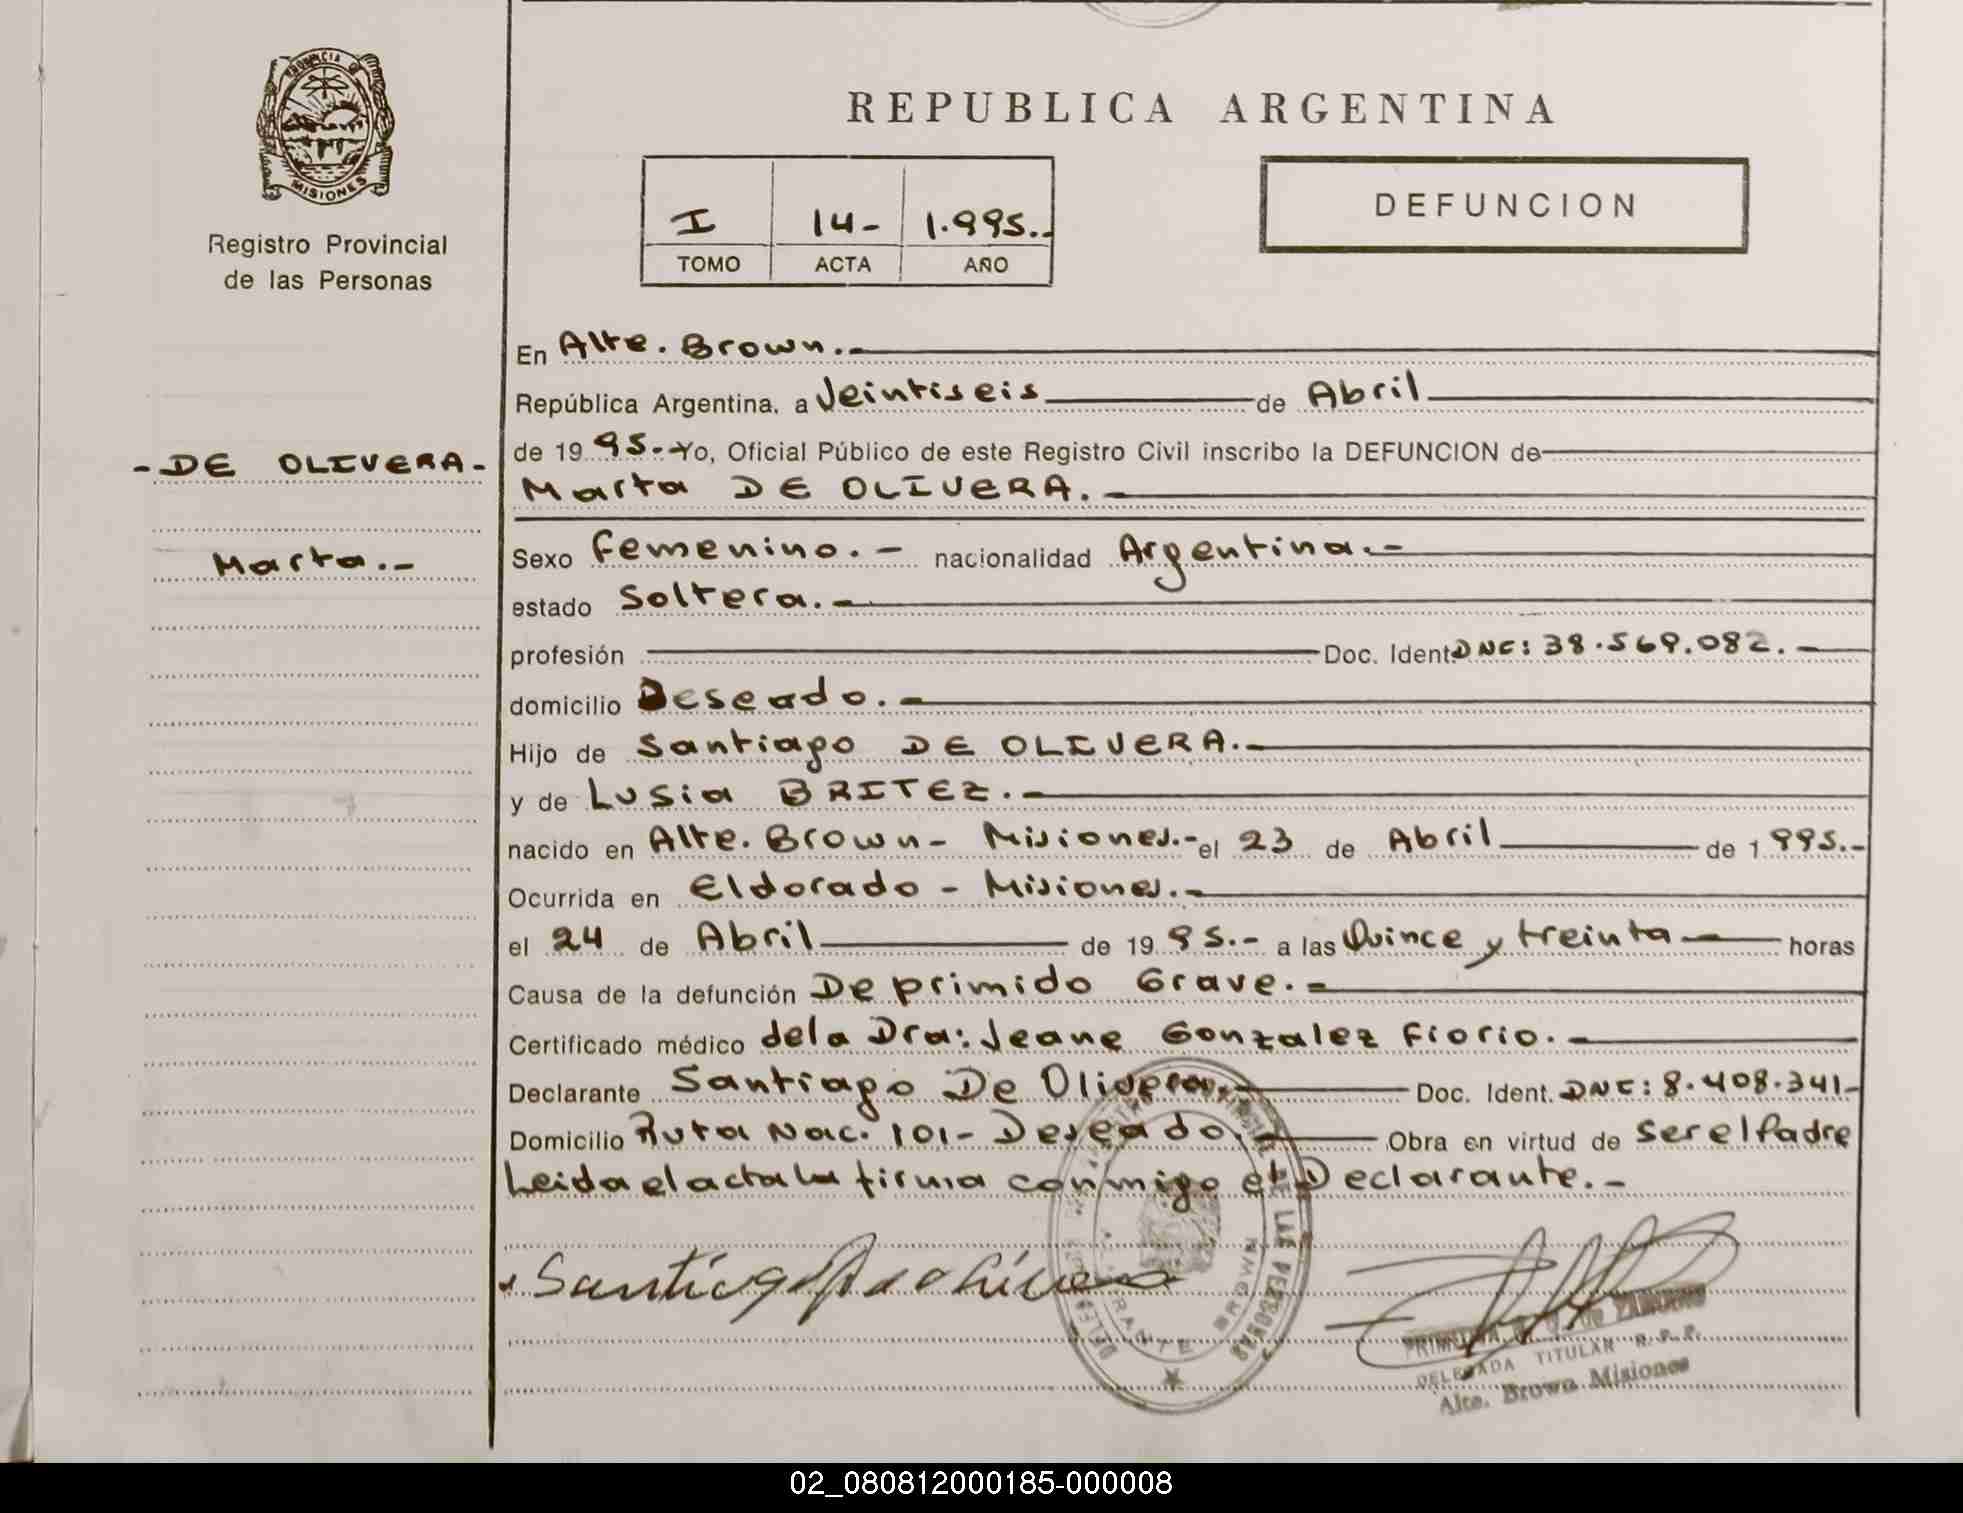 REPUBLICA ARGENTINA
PROVINCIA DE
MISIONES
Registro Provincial
de las Personas
I 14- 1.995.-
TOMO ACTA AÑO
DEFUNCION
- DE OLIVERA -
Marta.-
En Alte. Brown.-
República Argentina, a Veintiseis de Abril
de 19 95.- Yo, Oficial Público de este Registro Civil inscribo la DEFUNCION de
Marta DE OLIVERA.-
Sexo Femenino.- nacionalidad Argentina.-
estado Soltera.-
profesión Doc. Ident. DNI: 38.569.082.-
domicilio Deseado.-
Hijo de Santiago DE OLIVERA.-
y de Lusia BRITEZ.-
nacido en Alte. Brown- Misiones.- el 23 de Abril de 1.995.-
Ocurrida en Eldorado - Misiones.-
el 24 de Abril de 19 95.- a las Quince y treinta horas
Causa de la defunción Deprimido Grave.-
Certificado médico dela Dra: Jeane Gonzalez Fiorio.-
Declarante Santiago De Olivera.- Doc. Ident. DNI: 8.408.341-
Domicilio Ruta Nac. 101- Deseado.- Obra en virtud de ser el Padre
Leida el acta la firma conmigo el Declarante.-
Santiago De olivera
DE LAS PERSONAS
BROWN
DELEGADA TITULAR R.P.P.
Alte. Brown Misiones
02_080812000185-000008